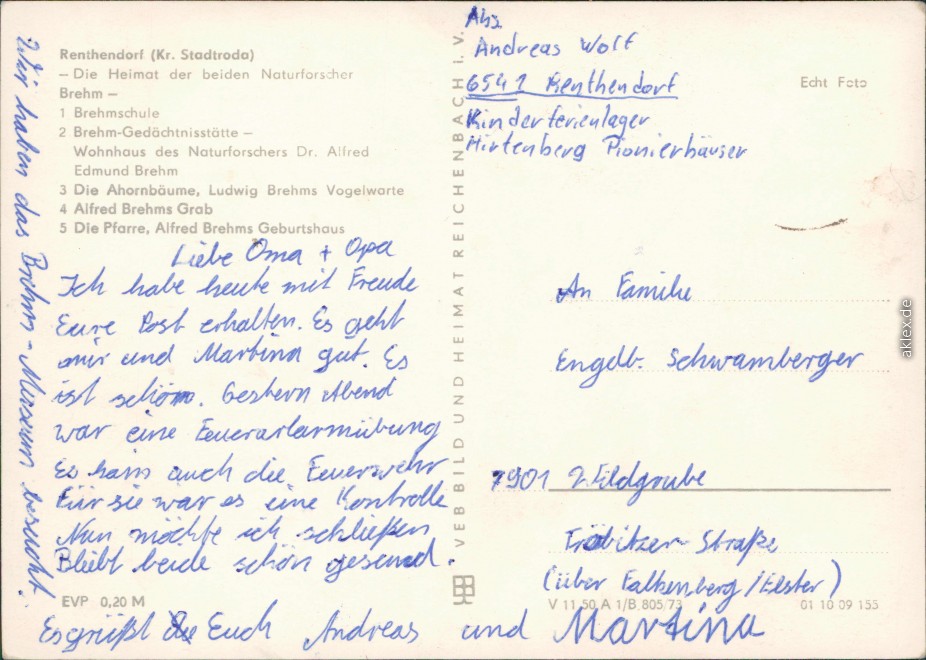 Renthendorf (Kr. Stadtroda)
– Die Heimat der beiden Naturforscher
Brehm –
1 Brehmschule
2 Brehm-Gedächtnisstätte –
Wohnhaus des Naturforschers Dr. Alfred
Edmund Brehm
3 Die Ahornbäume, Ludwig Brehms Vogelwarte
4 Alfred Brehms Grab
5 Die Pfarre, Alfred Brehms Geburtshaus
Liebe Oma + Opa
Ich habe heute mit Freude
Eure Post erhalten. Es geht
mir und Martina gut. Es
ist schön. Gestern Abend
war eine Feueralarmübung
Es kam auch die Feuerwehr
Für sie war es eine Kontrolle
Nun möchte ich schließen
Bleibt beide schön gesund.
Es grüßt Euch Andreas und Martina
Wir haben das Brehm-Museum besucht.
EVP 0,20 M
VEB BILD UND HEIMAT REICHENBACH i. V.
Abs.
Andreas Wolf
6541 Renthendorf
Kinderferienlager
Hirtenberg Pionierhäuser
Echt Foto
An Familie
Engelb. Schwamberger
7901 Wildgrube
Tröbitzer Straße
(über Falkenberg/Elster)
V 11 50 A 1/B 805/73
01 10 09 155
aklex.de